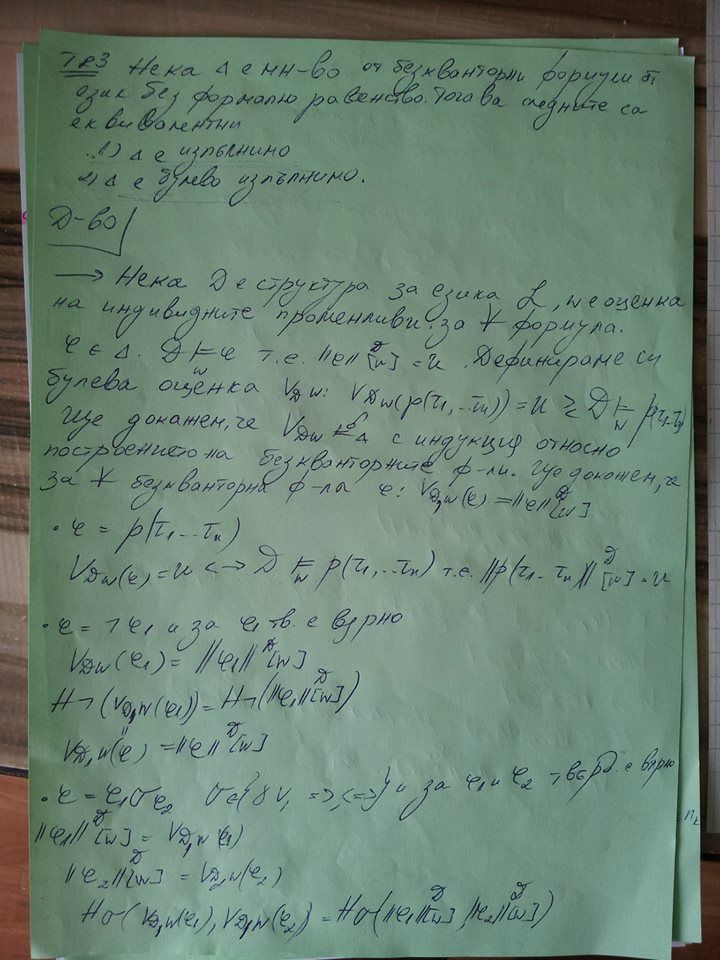 Тв3 Нека Δ е мн-во от безкванторни формули от
език без формално равенство. Тогава следните са
еквивалентни
1) Δ е изпълнимо
2) Δ е булево изпълнимо.
Д-во
→ Нека D е структура за езика L, w е оценка
на индивидните променливи. за ∀ формула.
φ ∈ Δ. D ⊨_w φ т.е. ||φ||^D[w] = и. Дефинираме си
булева оценка V_Dw: V_Dw(p(τ1,...τn)) = и ⇄ D ⊨_w p(τ1..τn)
Ще докажем, че V_Dw ⊨^δ Δ с индукция относно
построението на безкванторните ф-ли. Ще докажем, че
за ∀ безкванторна ф-ла φ: V_D,w(φ) = ||φ||^D[w]
• φ = p(τ1...τn)
V_Dw(φ) = и <-> D ⊨_w p(τ1,...τn) т.е. ||p(τ1..τn)||^D[w] = и
• φ = ¬φ1 и за φ1 тв. е вярно
V_Dw(φ1) = ||φ1||^D[w]
H¬(V_D,w(φ1)) = H¬(||φ1||^D[w])
V_D,w(φ) = ||φ||^D[w]
• φ = φ1 σ φ2 σ∈{& V, =>, <=>} и за φ1 и φ2 твърд. е вярно
||φ1||^D[w] = V_D,w(φ1)
||φ2||^D[w] = V_D,w(φ2)
Hσ(V_D,w(φ1), V_D,w(φ2)) = Hσ(||φ1||^D[w], ||φ2||^D[w])